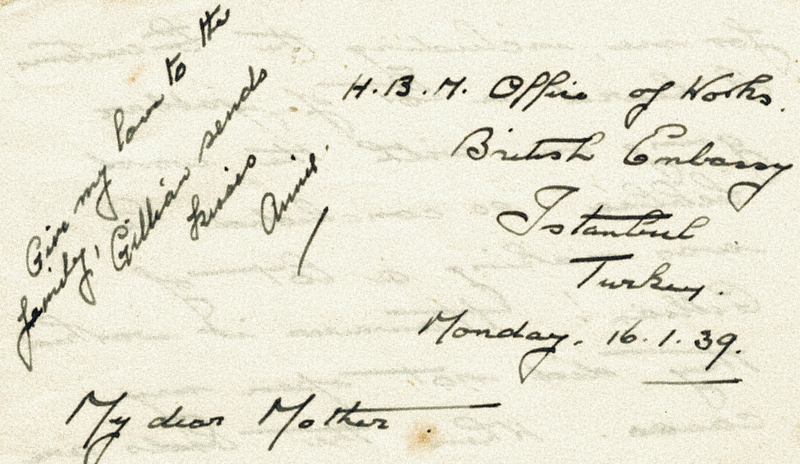 H.B.M. Office of Works.
British Embassy
Istanbul
Turkey.
Monday. 16.1.39.
My dear Mother.
Give my love to the
family, Gillian sends
kisses
Annie.